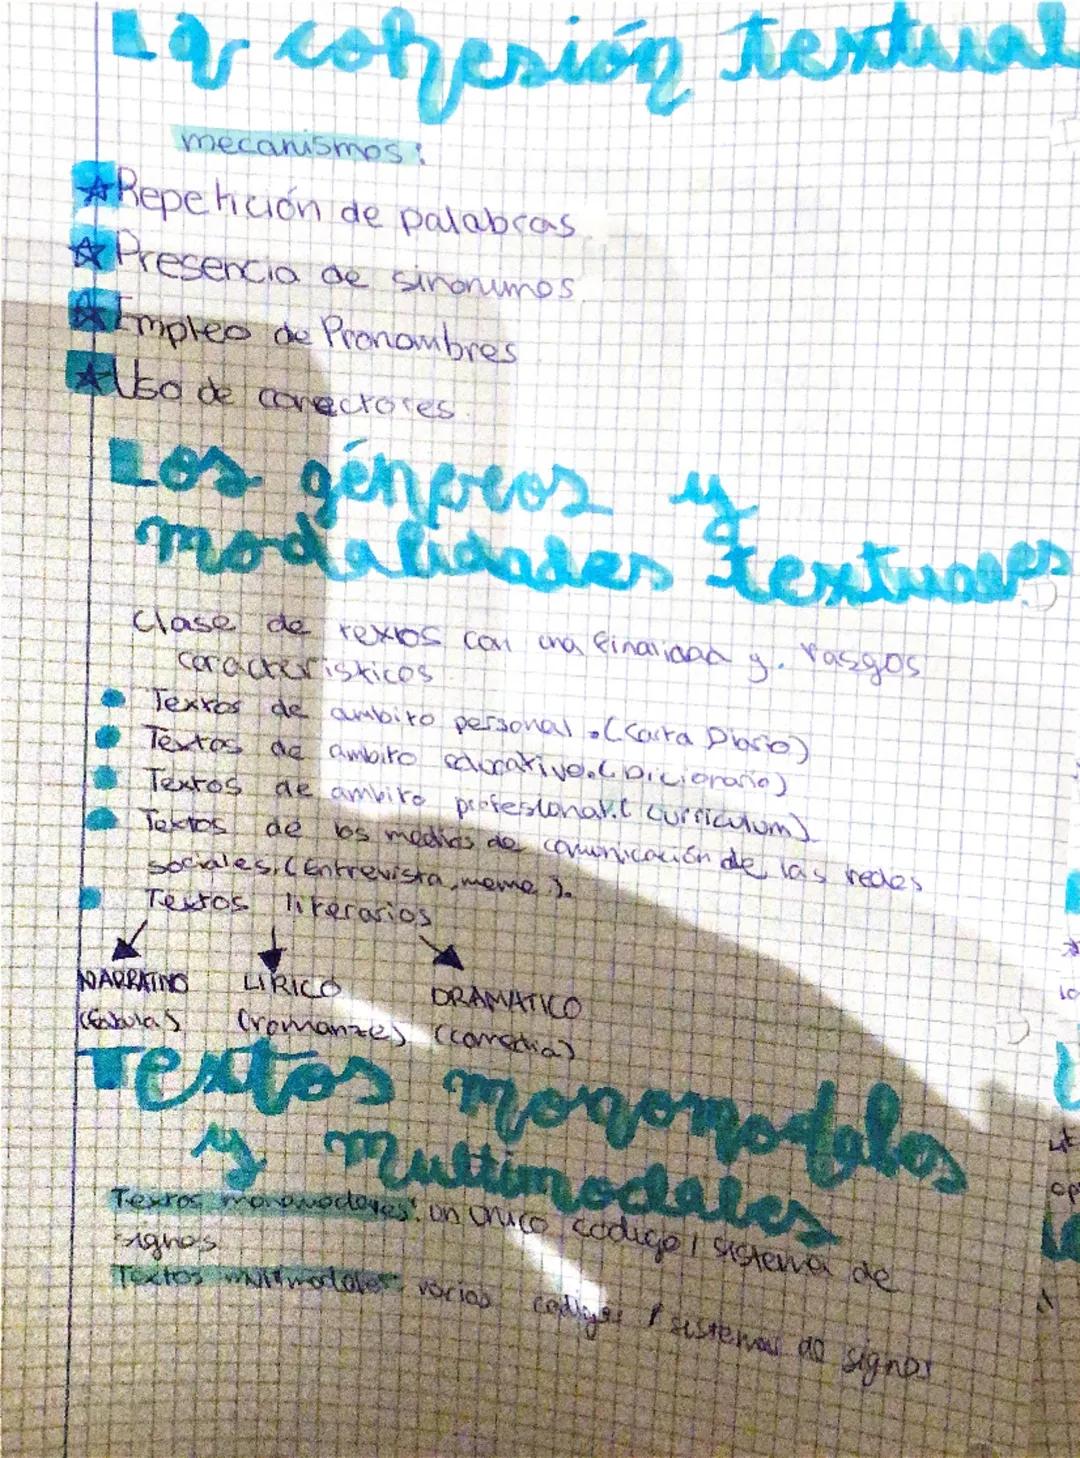 La cohesión textual
mecanismos:
Repetición de palabras.
Presencia de sinonimos.
Empleo de Pronombres
Uso de conectores.
Los géneros y
modalidades textuales
Clase de textos con una finalidad y. rasgos
caracteristicos
Textos de ambito personal.(Carta Diario)
Textos de ambito educativo.(Dicionario)
Textos de ambito profesional.(curriculum)
Textos de los medios de comunicación de las redes
sociales.(Entrevista, meme).
Textos literarios
NARRATIVO LIRICO DRAMATICO
(fabulas) (romance) (comedia)
Textos monomodales
y multimodales
Textos monomodales: un unico codigo / sistema de
signos
Textos multimodales: varios codigos / sistemas de signos